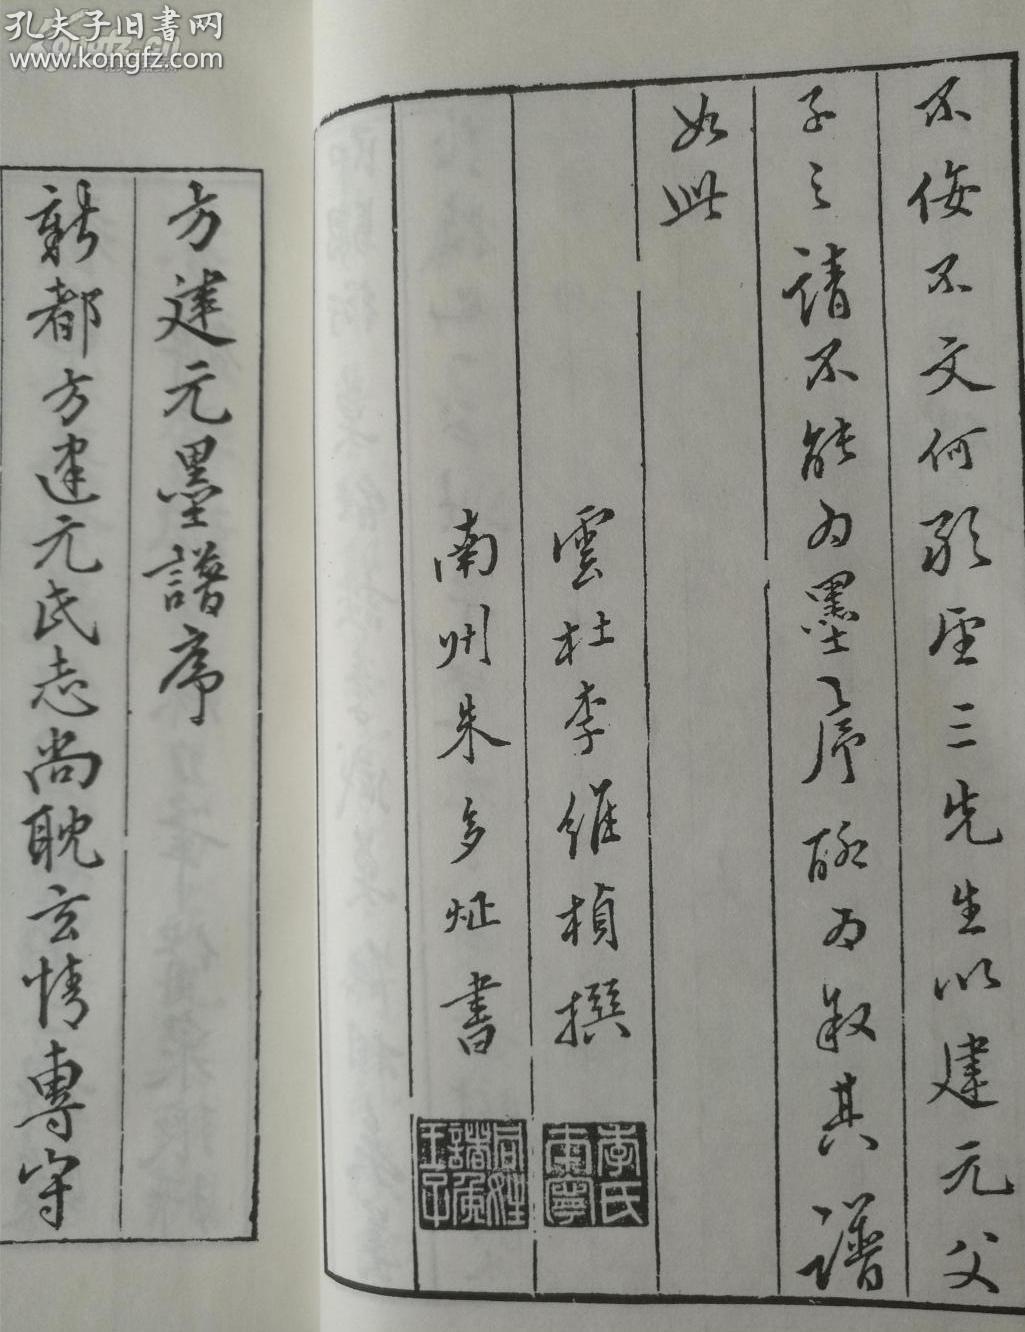 孔夫子旧書网
www.kongfz.com
不佞不文何敢望三先生以建元父
子之請不能為墨序聊為叙其譜
如此
雲杜李維楨撰
南州朱多炡書
李氏本寧
同姓諸侯王子
方建元墨譜序
新都方建元氏志尚耽玄情專守